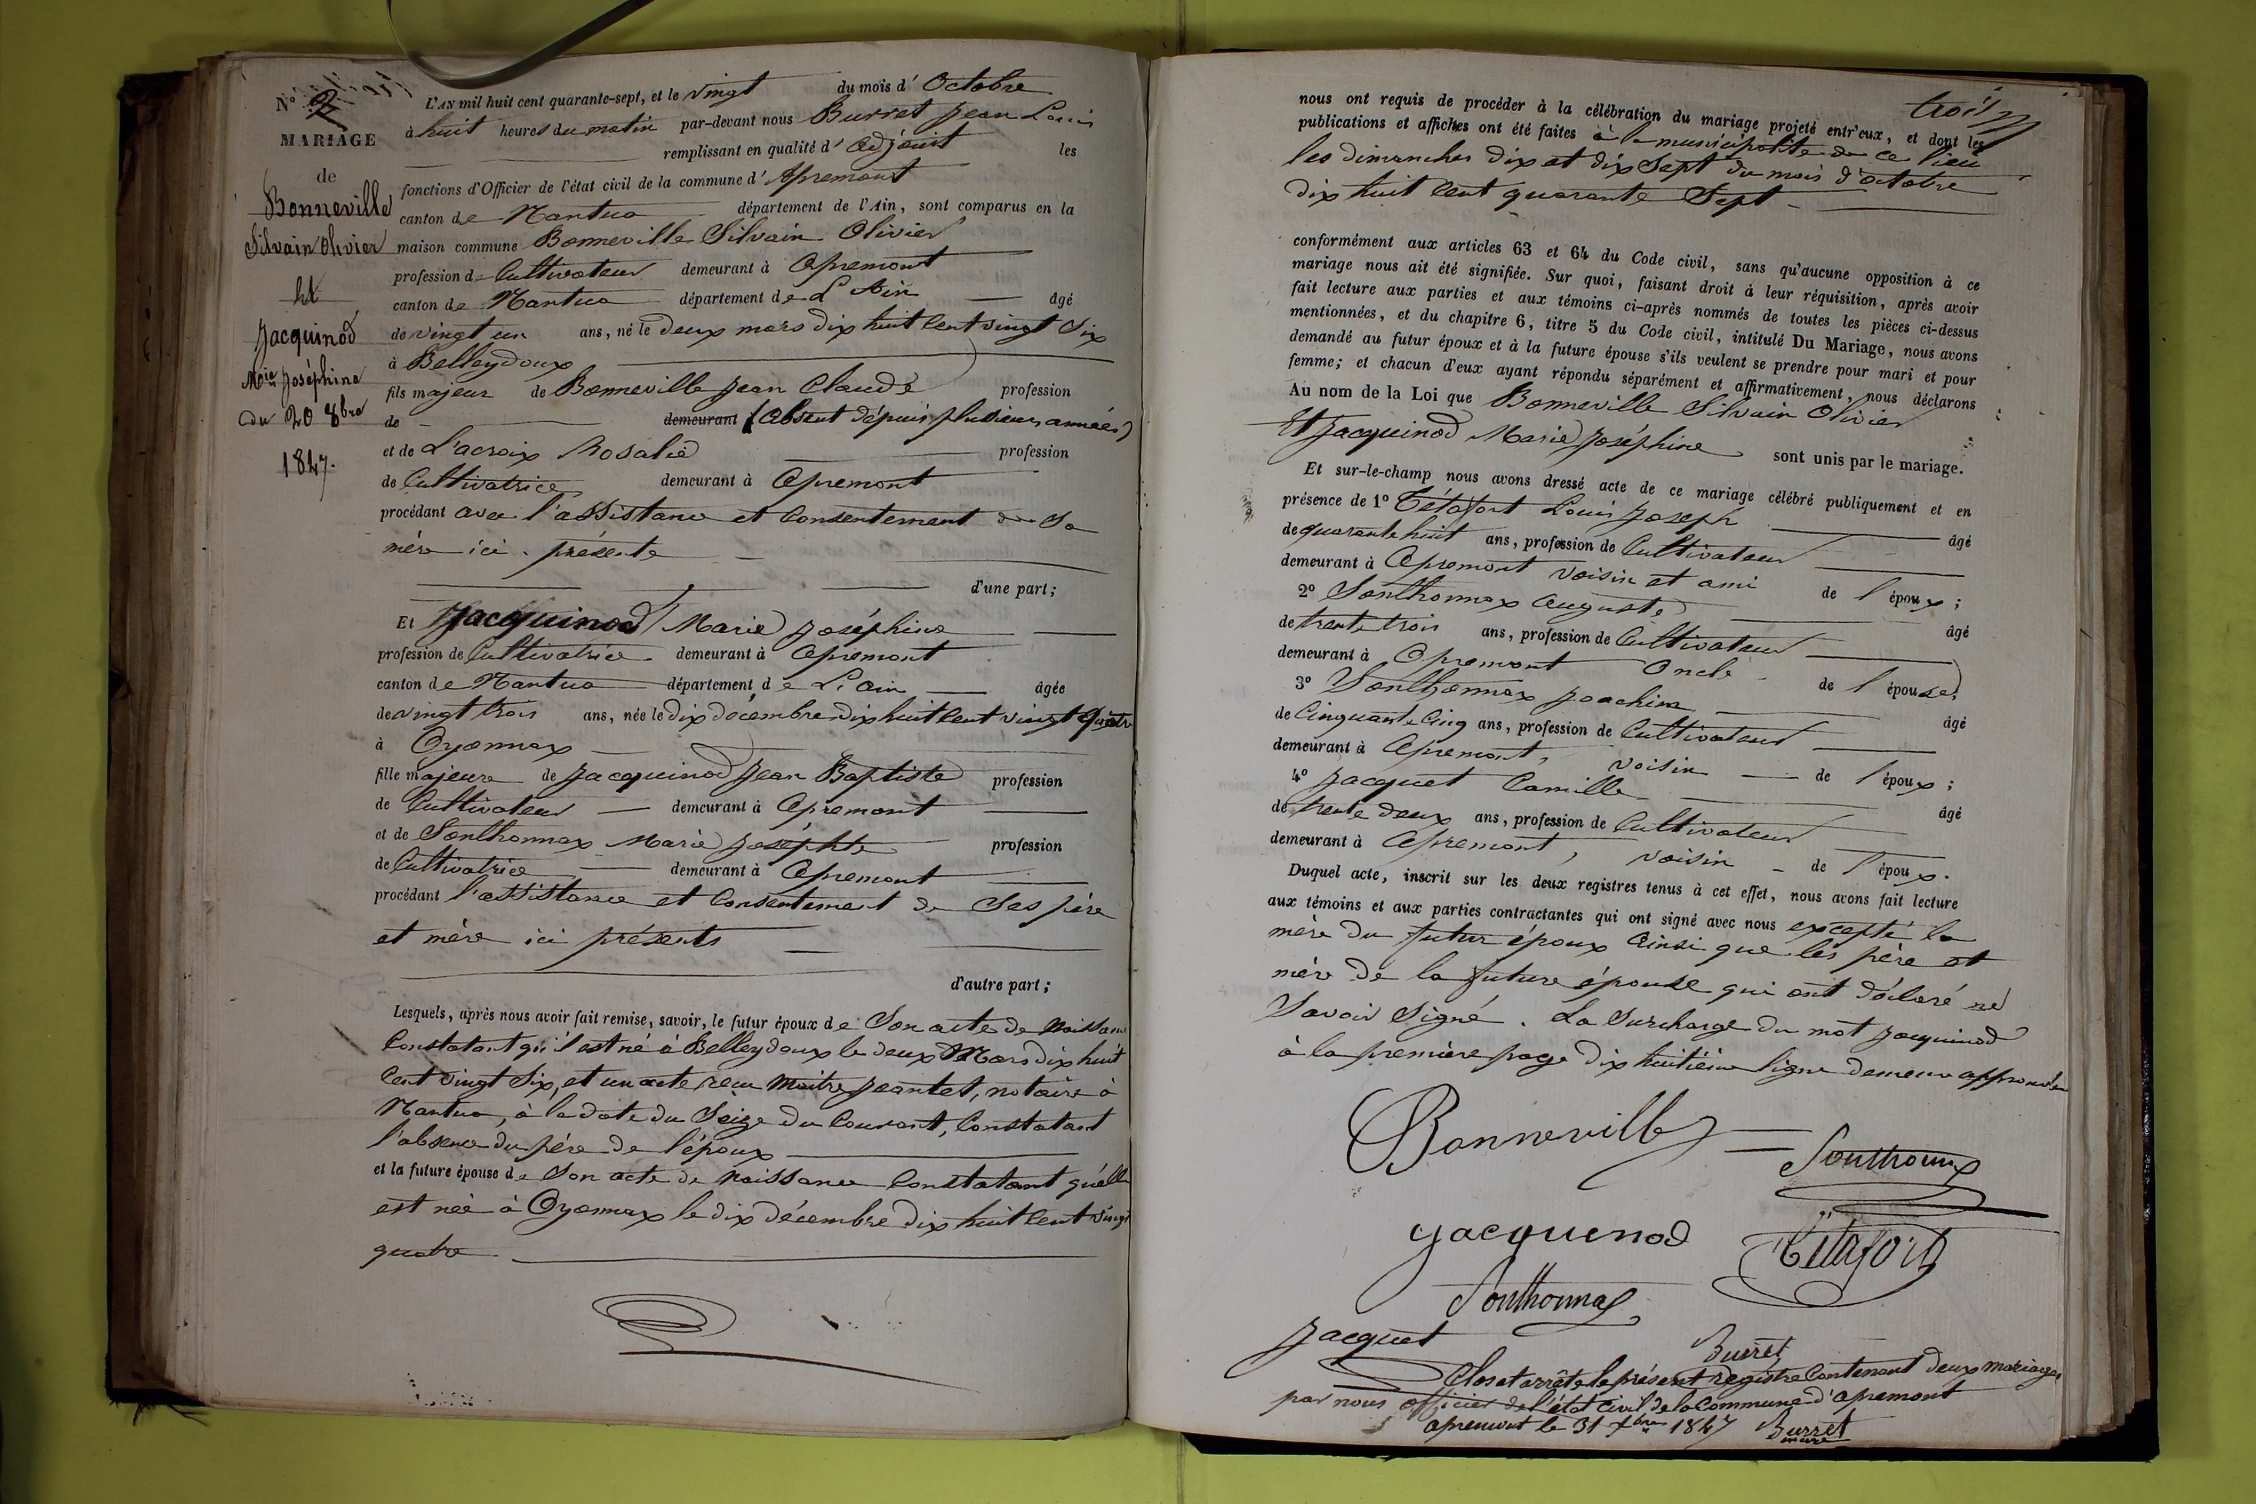 N° 2
MARIAGE
de
Bonneville
Silvain Olivier
et
Jacquinod
Mie Joséphine
du 20 8bre
1847.
L'AN mil huit cent quarante-sept, et le vingt du mois d'Octobre
à huit heures du matin par-devant nous Burret Jean Louis
remplissant en qualité d'adjoint les
fonctions d'Officier de l'état civil de la commune d'Apremont
canton de Nantua département de l'Ain, sont comparus en la
maison commune Bonneville Silvain Olivier
profession de Cultivateur demeurant à Apremont
canton de Nantua département de L'Ain âgé
de vingt un ans, né le deux mars dix huit cent vingt six
à Belleydoux
fils majeur de Bonneville Jean Claude profession
de demeurant (absent dépuis plusieurs années)
et de L'acroix Rosalie profession
de Cultivatrice demeurant à Apremont
procédant avec l'assistance et consentement de Sa
mère ici présente
d'une part;
Et Jacquinod Marie Joséphine
profession de Cultivatrice demeurant à Apremont
canton de Nantua département de L'ain âgée
de vingt trois ans, née le dix décembre dix huit cent vingt quatre
à Oyonnax
fille majeure de Jacquinod Jean Baptiste profession
de Cultivateur demeurant à Apremont
et de Sonthonnax Marie Joséphte profession
de Cultivatrice demeurant à Apremont
procédant l'assistance et consentement de Ses père
et mère ici présents
d'autre part;
Lesquels, après nous avoir fait remise, savoir, le futur époux de Son acte de naissance
Constatant qu'il est né à Belleydoux le deux Mars dix huit
cent vingt six, et un acte recu maitre Jeantet, notaire à
Nantua, à la date du Seize du Courant, Constatant
l'absence du père de l'époux
et la future épouse de Son acte de naissance Constatant qu'elle
est née à Oyonnax le dix décembre dix huit cent vingt
quatre
trois
nous ont requis de procéder à la célébration du mariage projeté entr'eux, et dont les
publications et affiches ont été faites à la municipalité de ce lieu
les dimanches dix et dix Sept du mois d'octobre
dix huit cent quarante Sept
conformément aux articles 63 et 64 du Code civil, sans qu'aucune opposition à ce
mariage nous ait été signifiée. Sur quoi, faisant droit à leur réquisition, après avoir
fait lecture aux parties et aux témoins ci-après nommés de toutes les pièces ci-dessus
mentionnées, et du chapitre 6, titre 5 du Code civil, intitulé Du Mariage, nous avons
demandé au futur époux et à la future épouse s'ils veulent se prendre pour mari et pour
femme; et chacun d'eux ayant répondu séparément et affirmativement, nous déclarons
Au nom de la Loi que Bonneville Silvain Olivier
Et Jacquinod Marie Joséphine sont unis par le mariage.
Et sur-le-champ nous avons dressé acte de ce mariage célébré publiquement et en
présence de 1° Tétafort Louis Joseph âgé
de quarante huit ans, profession de Cultivateur
demeurant à Apremont voisin et ami de l'époux;
2° Sonthonnax Auguste âgé
de trente trois ans, profession de Cultivateur
demeurant à Apremont Oncle de l'épouse;
3° Sonthonnax Joachim âgé
de Cinquante Cinq ans, profession de Cultivateur
demeurant à Apremont, voisin de l'époux;
4° Jacquet Camille âgé
de trente deux ans, profession de Cultivateur
demeurant à Apremont, voisin de l'époux.
Duquel acte, inscrit sur les deux registres tenus à cet effet, nous avons fait lecture
aux témoins et aux parties contractantes qui ont signé avec nous excepté la
mère du futur époux ainsi que les père et
mère de la future épouse qui ont déclaré ne
Savoir Signé. La Surcharge du mot Jacquinod
à la première page dix huitième ligne demeure approuvée
Bonneville
Sonthonnax
Jacquenod
Tétafort
Sonthonnax
Jacquet
Burret
Clos et arrêté le présent registre Contenant deux mariages
par nous officier de l'état Civil de la Commune d'apremont
apremont le 31 Xbre 1847 Burret
maire